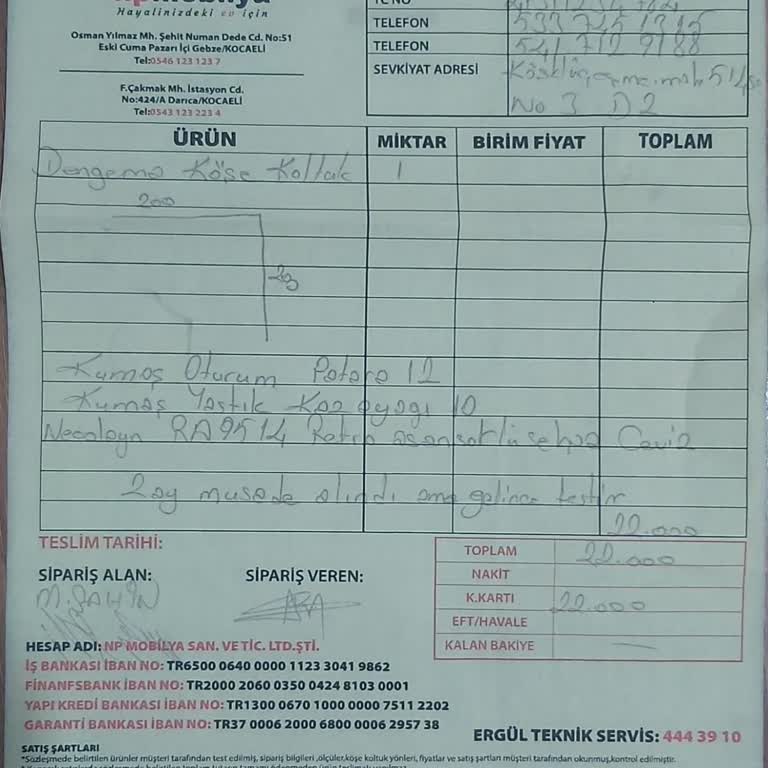 Hayalinizdeki ev için
Osman Yılmaz Mh. Şehit Numan Dede Cd. No:51
Eski Cuma Pazarı İçi Gebze/KOCAELİ
Tel:0546 123 123 7
F.Çakmak Mh. İstasyon Cd.
No:424/A Darıca/KOCAELİ
Tel:0543 123 223 4
TELEFON 533 745 1315
TELEFON 541 712 9188
SEVKİYAT ADRESİ
No 3 D2
ÜRÜN MİKTAR BİRİM FİYAT TOPLAM
Dengema Köşe Koltuk 1
200
Kumaş Oturum Potoro 12
Kumaş Yastık Kaz ayağı 10
RA9514 Retro asansörlü sehpa Ceviz
2 ay müsade alındı ama gelince testir
22.000
TESLİM TARİHİ:
SİPARİŞ ALAN: SİPARİŞ VEREN:
M.ŞAHİN
TOPLAM 22.000
NAKİT
K.KARTI 22.000
EFT/HAVALE
KALAN BAKİYE —
HESAP ADI: NP MOBİLYA SAN. VE TİC. LTD.ŞTİ.
İŞ BANKASI İBAN NO: TR6500 0640 0000 1123 3041 9862
FİNANFSBANK İBAN NO: TR2000 2060 0350 0424 8103 0001
YAPI KREDİ BANKASI İBAN NO: TR1300 0670 1000 0000 7511 2202
GARANTİ BANKASI İBAN NO: TR37 0006 2000 6800 0006 2957 38
ERGÜL TEKNİK SERVİS: 444 39 10
SATIŞ ŞARTLARI
*Sözleşmede belirtilen ürünler müşteri tarafından test edilmiş, sipariş bilgileri ,ölçüler,köşe koltuk yönleri, fiyatlar ve satış şartları müşteri tarafından okunmuş,kontrol edilmiştir.